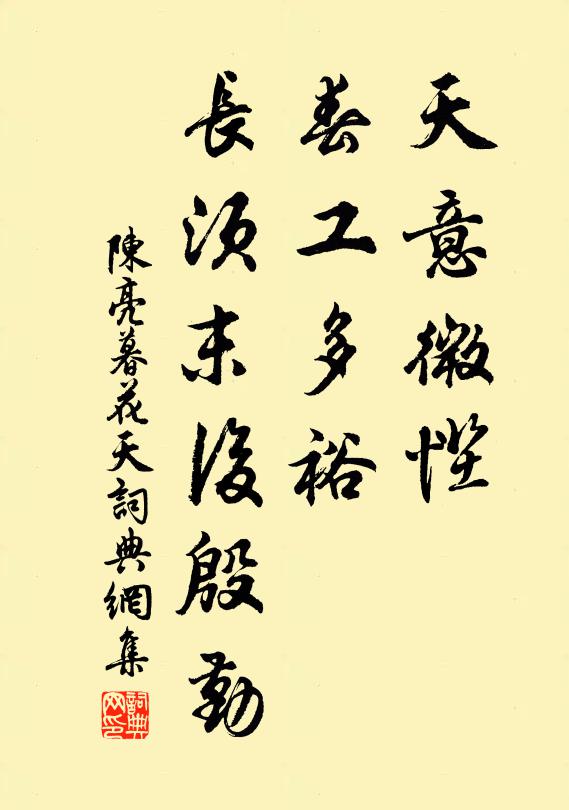 天意微慳
春工多裕
長須末後殷勤
陳亮暮花天詞典網集
詞典网印